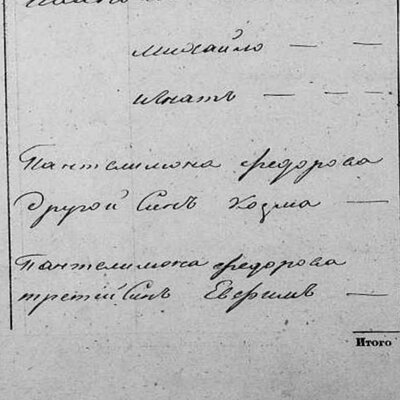 Михайло — —
Игнатъ — — —
Пантелимона Федорова
другой Сынъ Козма —
Пантелимона Федорова
третій Сынъ Евфимъ —
Итого